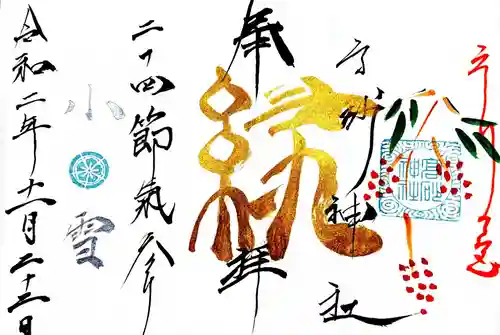 高砂神社
奉拝
二十四節氣参り
小雪
令和二年十一月二十三日